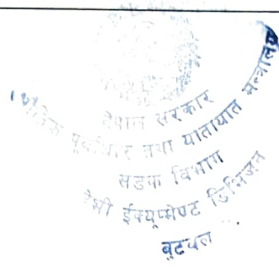 नेपाल सरकार
भौतिक पूर्वाधार तथा यातायात मन्त्रालय
सडक विभाग
हेभी ईक्यूप्मेण्ट डिभिजन
बुटवल